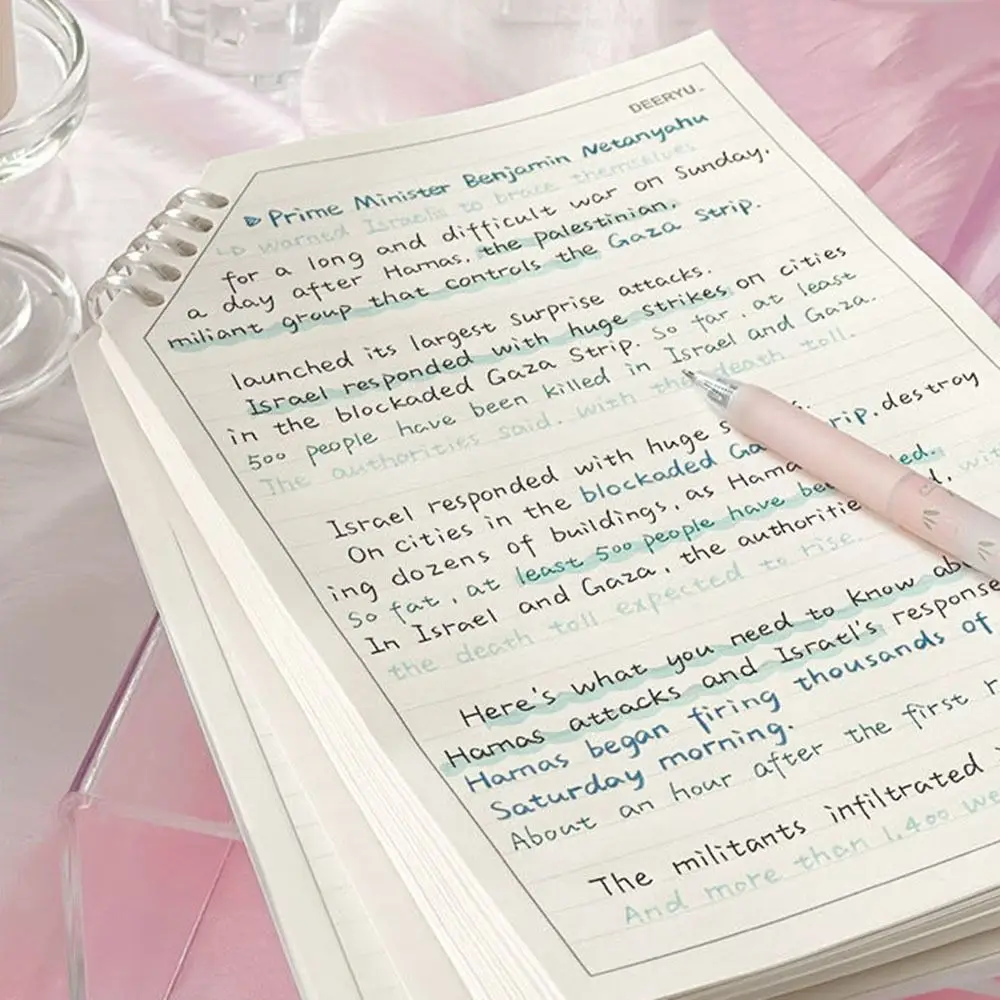 DEERYU.
Prime Minister Benjamin Netanyahu
warned Israelis to brace themselves
for a long and difficult war on Sunday.
a day after Hamas. the palestinian.
miliant group that controls the Gaza Strip.
launched its largest surprise attacks.
Israel responded with huge strikes on cities
in the blockaded Gaza Strip. So far, at least
500 people have been killed in Israel and Gaza.
The authorities said. with the death toll.
Israel responded with huge
On cities in the blockaded rip. destroy
ing dozens of buildings, as Hama led.
So fat, at least 500 people have
In Israel and Gaza, the authoritie
the death toll expected to rise.
Here's what you need to know
Hamas attacks and Isratl's response
Hamas began firing thousands of
Saturday morning.
About an hour after the first
The militants infiltrated
And more than 1.400